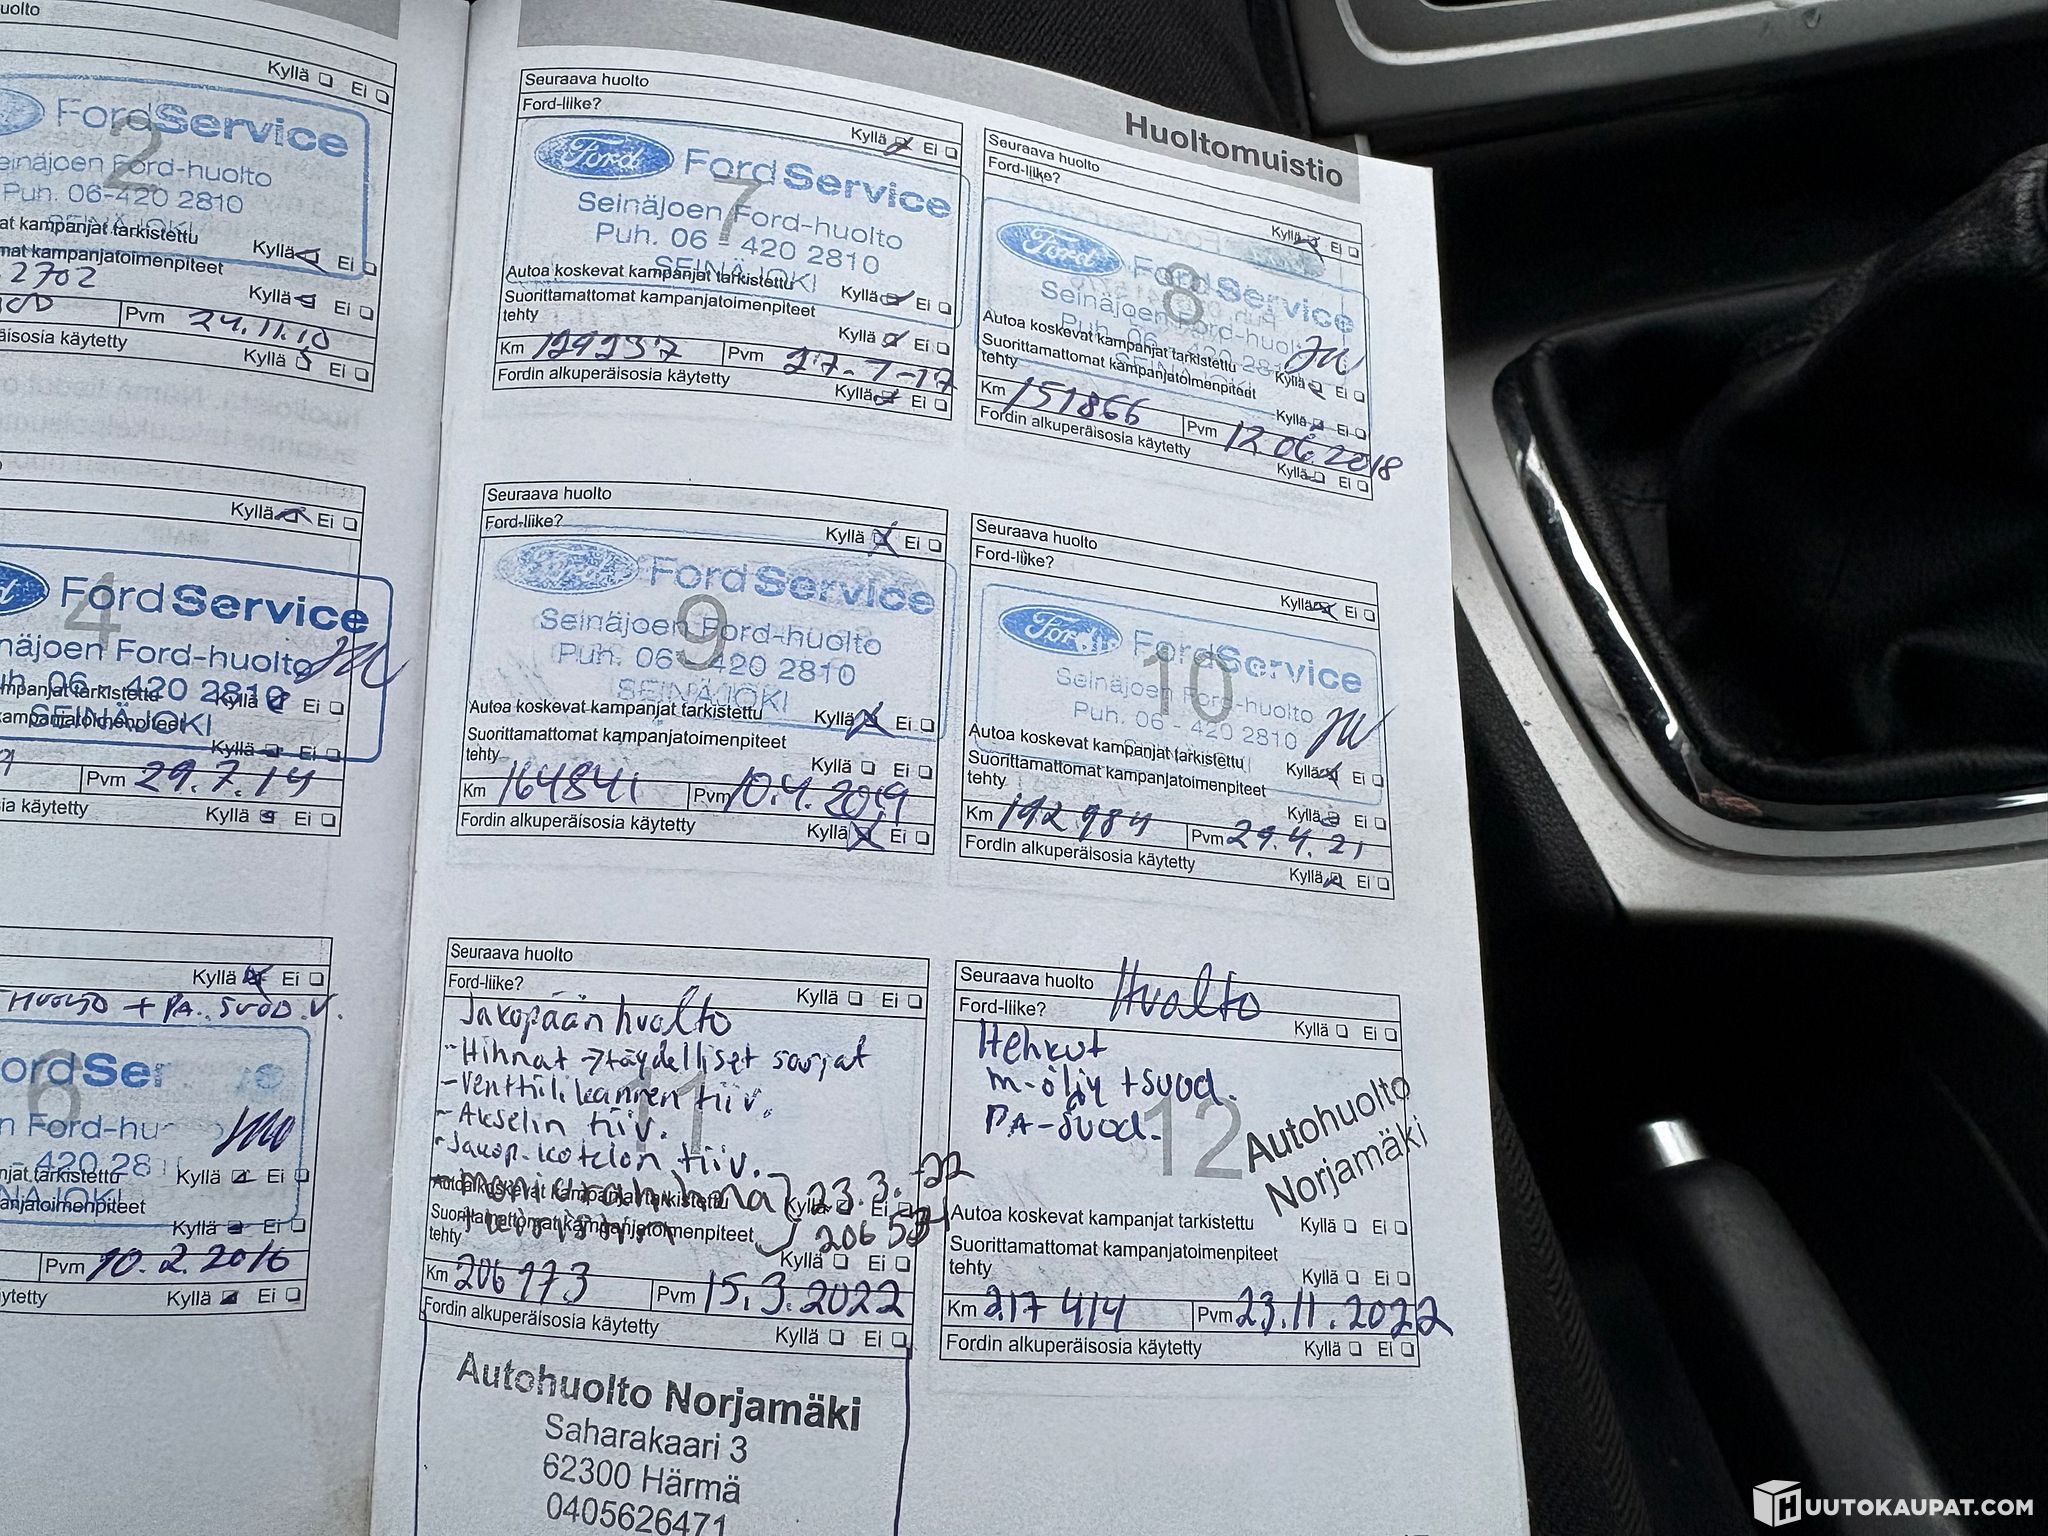 uolto
Kyllä Ei
FordService
2
einäjoen Ford-huolto
Puh. 06-420 2810
SEINÄJOKI
at kampanjat tarkistettu
Kyllä Ei
mat kampanjatoimenpiteet
2702
Kyllä Ei
Pvm 24.11.10
äisosia käytetty
Kyllä Ei
Kyllä Ei
FordService
4
näjoen Ford-huolto
uh. 06 - 420 2810
SEINÄJOKI
mpanjat tarkistettu
Kyllä Ei
kampanjatoimenpiteet
Kyllä Ei
Pvm 29.7.14
sia käytetty
Kyllä Ei
Kyllä Ei
HUOLTO + PA. SUOD. V.
ordSe
6
n Ford-hu
- 420 281
NÄJOKI
njat tarkistettu
Kyllä Ei
anjatoimenpiteet
Kyllä Ei
Pvm 10.2.2016
ytetty
Kyllä Ei
Huoltomuistio
Seuraava huolto
Ford-liike?
Kyllä Ei
Ford FordService
7
Seinäjoen Ford-huolto
Puh. 06 - 420 2810
SEINÄJOKI
Autoa koskevat kampanjat tarkistettu
Kyllä Ei
Suorittamattomat kampanjatoimenpiteet
tehty
Kyllä Ei
Km 129237 Pvm 27-7-17
Fordin alkuperäisosia käytetty
Kyllä Ei
Seuraava huolto
Ford-liike?
Kyllä Ei
FordService
8
Seinäjoen Ford-huolto
Puh. 06 - 420 2810
SEINÄJOKI
Autoa koskevat kampanjat tarkistettu
Kyllä Ei
Suorittamattomat kampanjatoimenpiteet
tehty
Kyllä Ei
Km 151866 Pvm 12.06.2018
Fordin alkuperäisosia käytetty
Kyllä Ei
Seuraava huolto
Ford-liike?
Kyllä Ei
Ford FordService
9
Seinäjoen Ford-huolto
Puh. 06 - 420 2810
SEINÄJOKI
Autoa koskevat kampanjat tarkistettu
Kyllä Ei
Suorittamattomat kampanjatoimenpiteet
tehty
Kyllä Ei
Km 164841 Pvm 10.4.2019
Fordin alkuperäisosia käytetty
Kyllä Ei
Seuraava huolto
Ford-liike?
Kyllä Ei
Ford FordService
10
Seinäjoen Ford-huolto
Puh. 06 - 420 2810
Autoa koskevat kampanjat tarkistettu
Kyllä Ei
Suorittamattomat kampanjatoimenpiteet
tehty
Kyllä Ei
Km 192984 Pvm 29.4.21
Fordin alkuperäisosia käytetty
Kyllä Ei
Seuraava huolto
Ford-liike?
Kyllä Ei
Jakopään huolto
- Hihnat → täydelliset sarjat
- Venttiilikannen tiiv.
11
- Akselin tiiv.
- Jakop. kotelon tiiv.
- moniurahihna 23.3.-22
Autoa koskevat kampanjat tarkistettu
Kyllä Ei
Suorittamattomat kampanjatoimenpiteet
tehty
Kyllä Ei
Km 206 173 Pvm 15.3.2022
Fordin alkuperäisosia käytetty
Kyllä Ei
Autohuolto Norjamäki
Saharakaari 3
62300 Härmä
0405626471
Seuraava huolto Huolto
Ford-liike?
Kyllä Ei
Hehkut
m-öljy + suod.
PA-suod.
12
Autohuolto
Norjamäki
Autoa koskevat kampanjat tarkistettu
Kyllä Ei
Suorittamattomat kampanjatoimenpiteet
tehty
Kyllä Ei
Km 217 414 Pvm 23.11.2022
Fordin alkuperäisosia käytetty
Kyllä Ei
HUUTOKAUPAT.COM